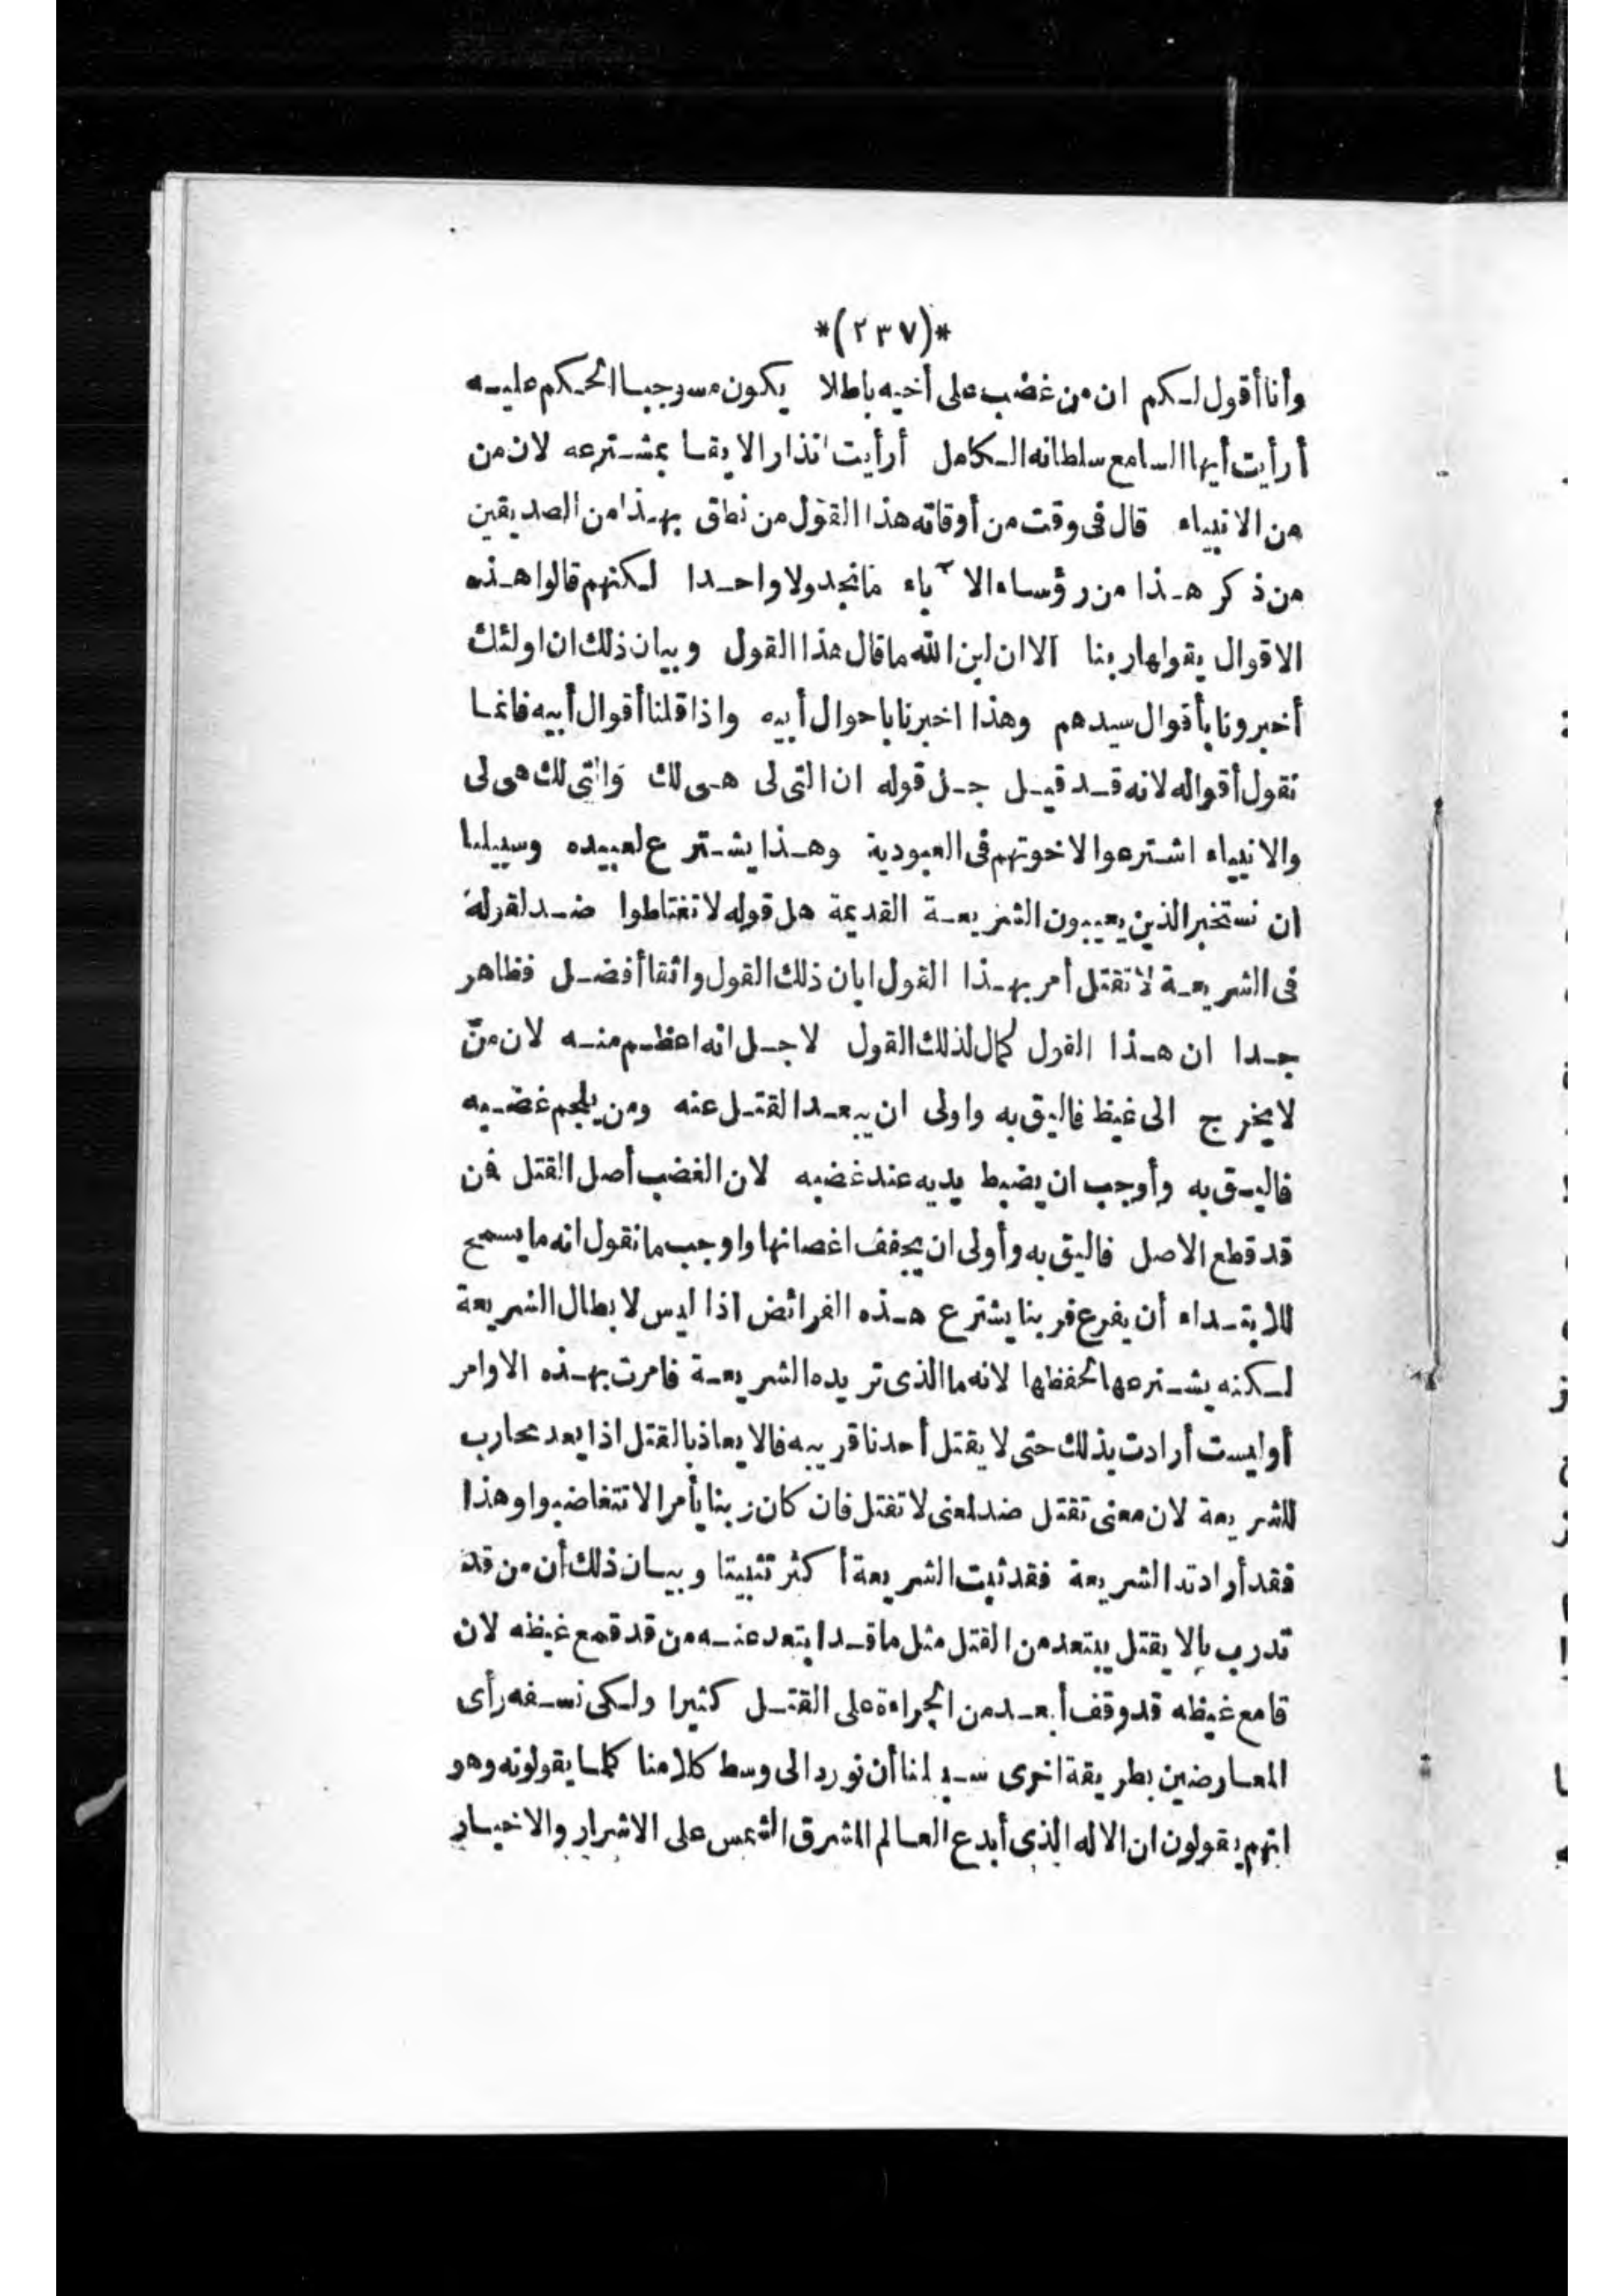 *(٢٣٧)*
وأنا أقول لكم ان من غضب على أخيه باطلا يكون مستوجبا الحكم عليه
أرأيت أيها السامع سلطانه الكامل أرأيت انذارا لايقا بمشترعه لان من
من الانبياء قال فى وقت من أوقاته هذا القول من نطق بهذا من الصديقين
من ذكر هذا من رؤساء الآباء فانجد ولا واحدا لكنهم قالوا هذه
الاقوال يقولها ربنا الا ان ابن الله ما قال هذا القول وبيان ذلك ان اولئك
أخبرونا بأقوال سيدهم وهذا اخبرنا باحوال أبيه واذا قلنا أقوال أبيه فانما
نقول أقواله لانه قد قيل جل قوله ان التى لى هى لك والتى لك هى لى
والانبياء اشترعوا لاخوتهم فى العبودية وهذا يشترع لعبيده وسبيلنا
ان نستخبر الذين يعيبون الشريعة القديمة هل قوله لا تغتاظوا ضد لقوله
فى الشريعة لا تقتل أمر بهذا القول ابان ذلك القول واثقا أفضل فظاهر
جدا ان هذا القول كمال لذلك القول لاجل انه اعظم منه لان من
لا يخرج الى غيظ فاليق به واولى ان يبعد القتل عنه ومن يلجم غضبه
فاليق به وأوجب ان يضبط يديه عند غضبه لان الغضب أصل القتل فن
قد قطع الاصل فاليق به وأولى ان يجفف اغصانها واوجب ما نقول انه ما يسمح
للابتداء أن يفرع فربنا يشترع هذه الفرائض اذا ليس لابطال الشريعة
لكنه يشترعها لحفظها لانه ما الذى تريده الشريعة فامرت بهذه الاوامر
أوليست أرادت بذلك حتى لا يقتل أحدنا قريبه فالايعاذ بالقتل اذا يعد محارب
للشريعة لان معنى تقتل ضد لمعنى لا تقتل فان كان ربنا يأمر الا تتغاضبوا وهذا
فقد أرادته الشريعة فقد ثبت الشريعة أكثر تثبيتا وبيان ذلك أن من قد
تدرب بالا يقتل يبتعد من القتل مثل ما قد ابتعد عنه من قد قمع غيظه لان
قامع غيظه قد وقف أبعد من الجراءة على القتل كثيرا ولكى نسفه رأى
المعارضين بطريقة اخرى سبيلنا أن نورد الى وسط كلامنا كلما يقولونه وهو
انهم يقولون ان الاله الذى أبدع العالم المشرق الشمس على الاشرار والاخيار